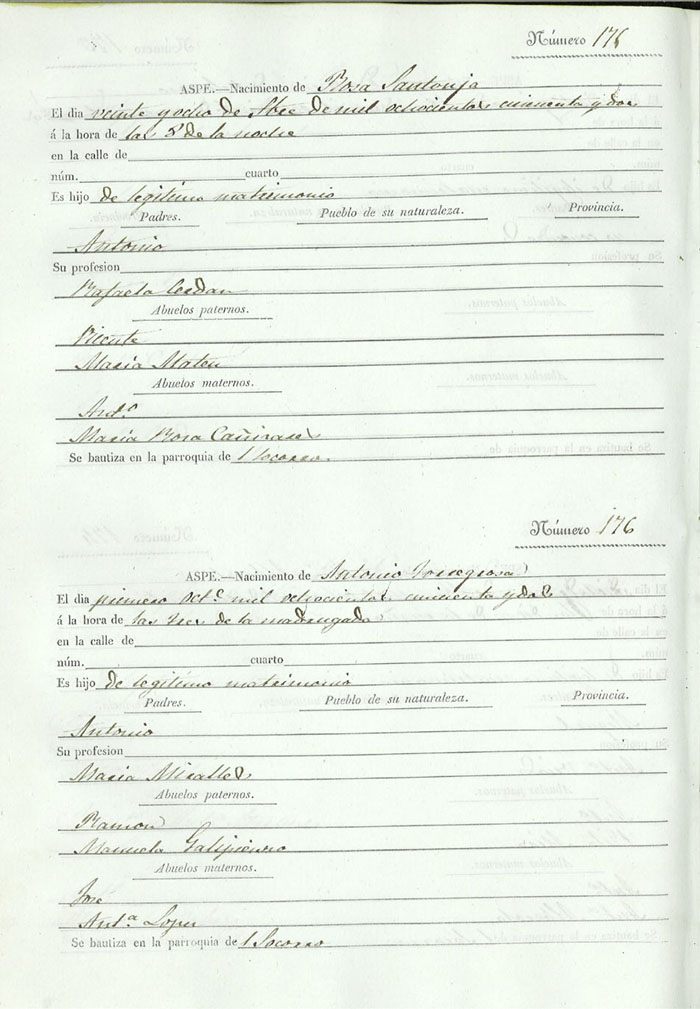 Número 175
ASPE.—Nacimiento de Rosa Santonja
El dia veinte y ocho de Stre de mil ochocientos cincuenta y dos
á la hora de las 8 de la noche
en la calle de
núm. cuarto
Es hijo de legitimo matrimonio
Padres. Pueblo de su naturaleza. Provincia.
Antonio
Su profesion
Rafaela Cerdan
Abuelos paternos.
Vicente
Maria Mateu
Abuelos maternos.
Antº
Maria Rosa Cañizares
Se bautiza en la parroquia de l Socorro.
Número 176
ASPE.—Nacimiento de Antonio Torregrosa
El dia primero Octe mil ochocientos cincuenta y dos
á la hora de las tres de la madrugada
en la calle de
núm. cuarto
Es hijo de legitimo matrimonio
Padres. Pueblo de su naturaleza. Provincia.
Antonio
Su profesion
Maria Miralles
Abuelos paternos.
Ramon
Manuela Galipienso
Abuelos maternos.
Jose
Antª Lopez
Se bautiza en la parroquia de l Socorro